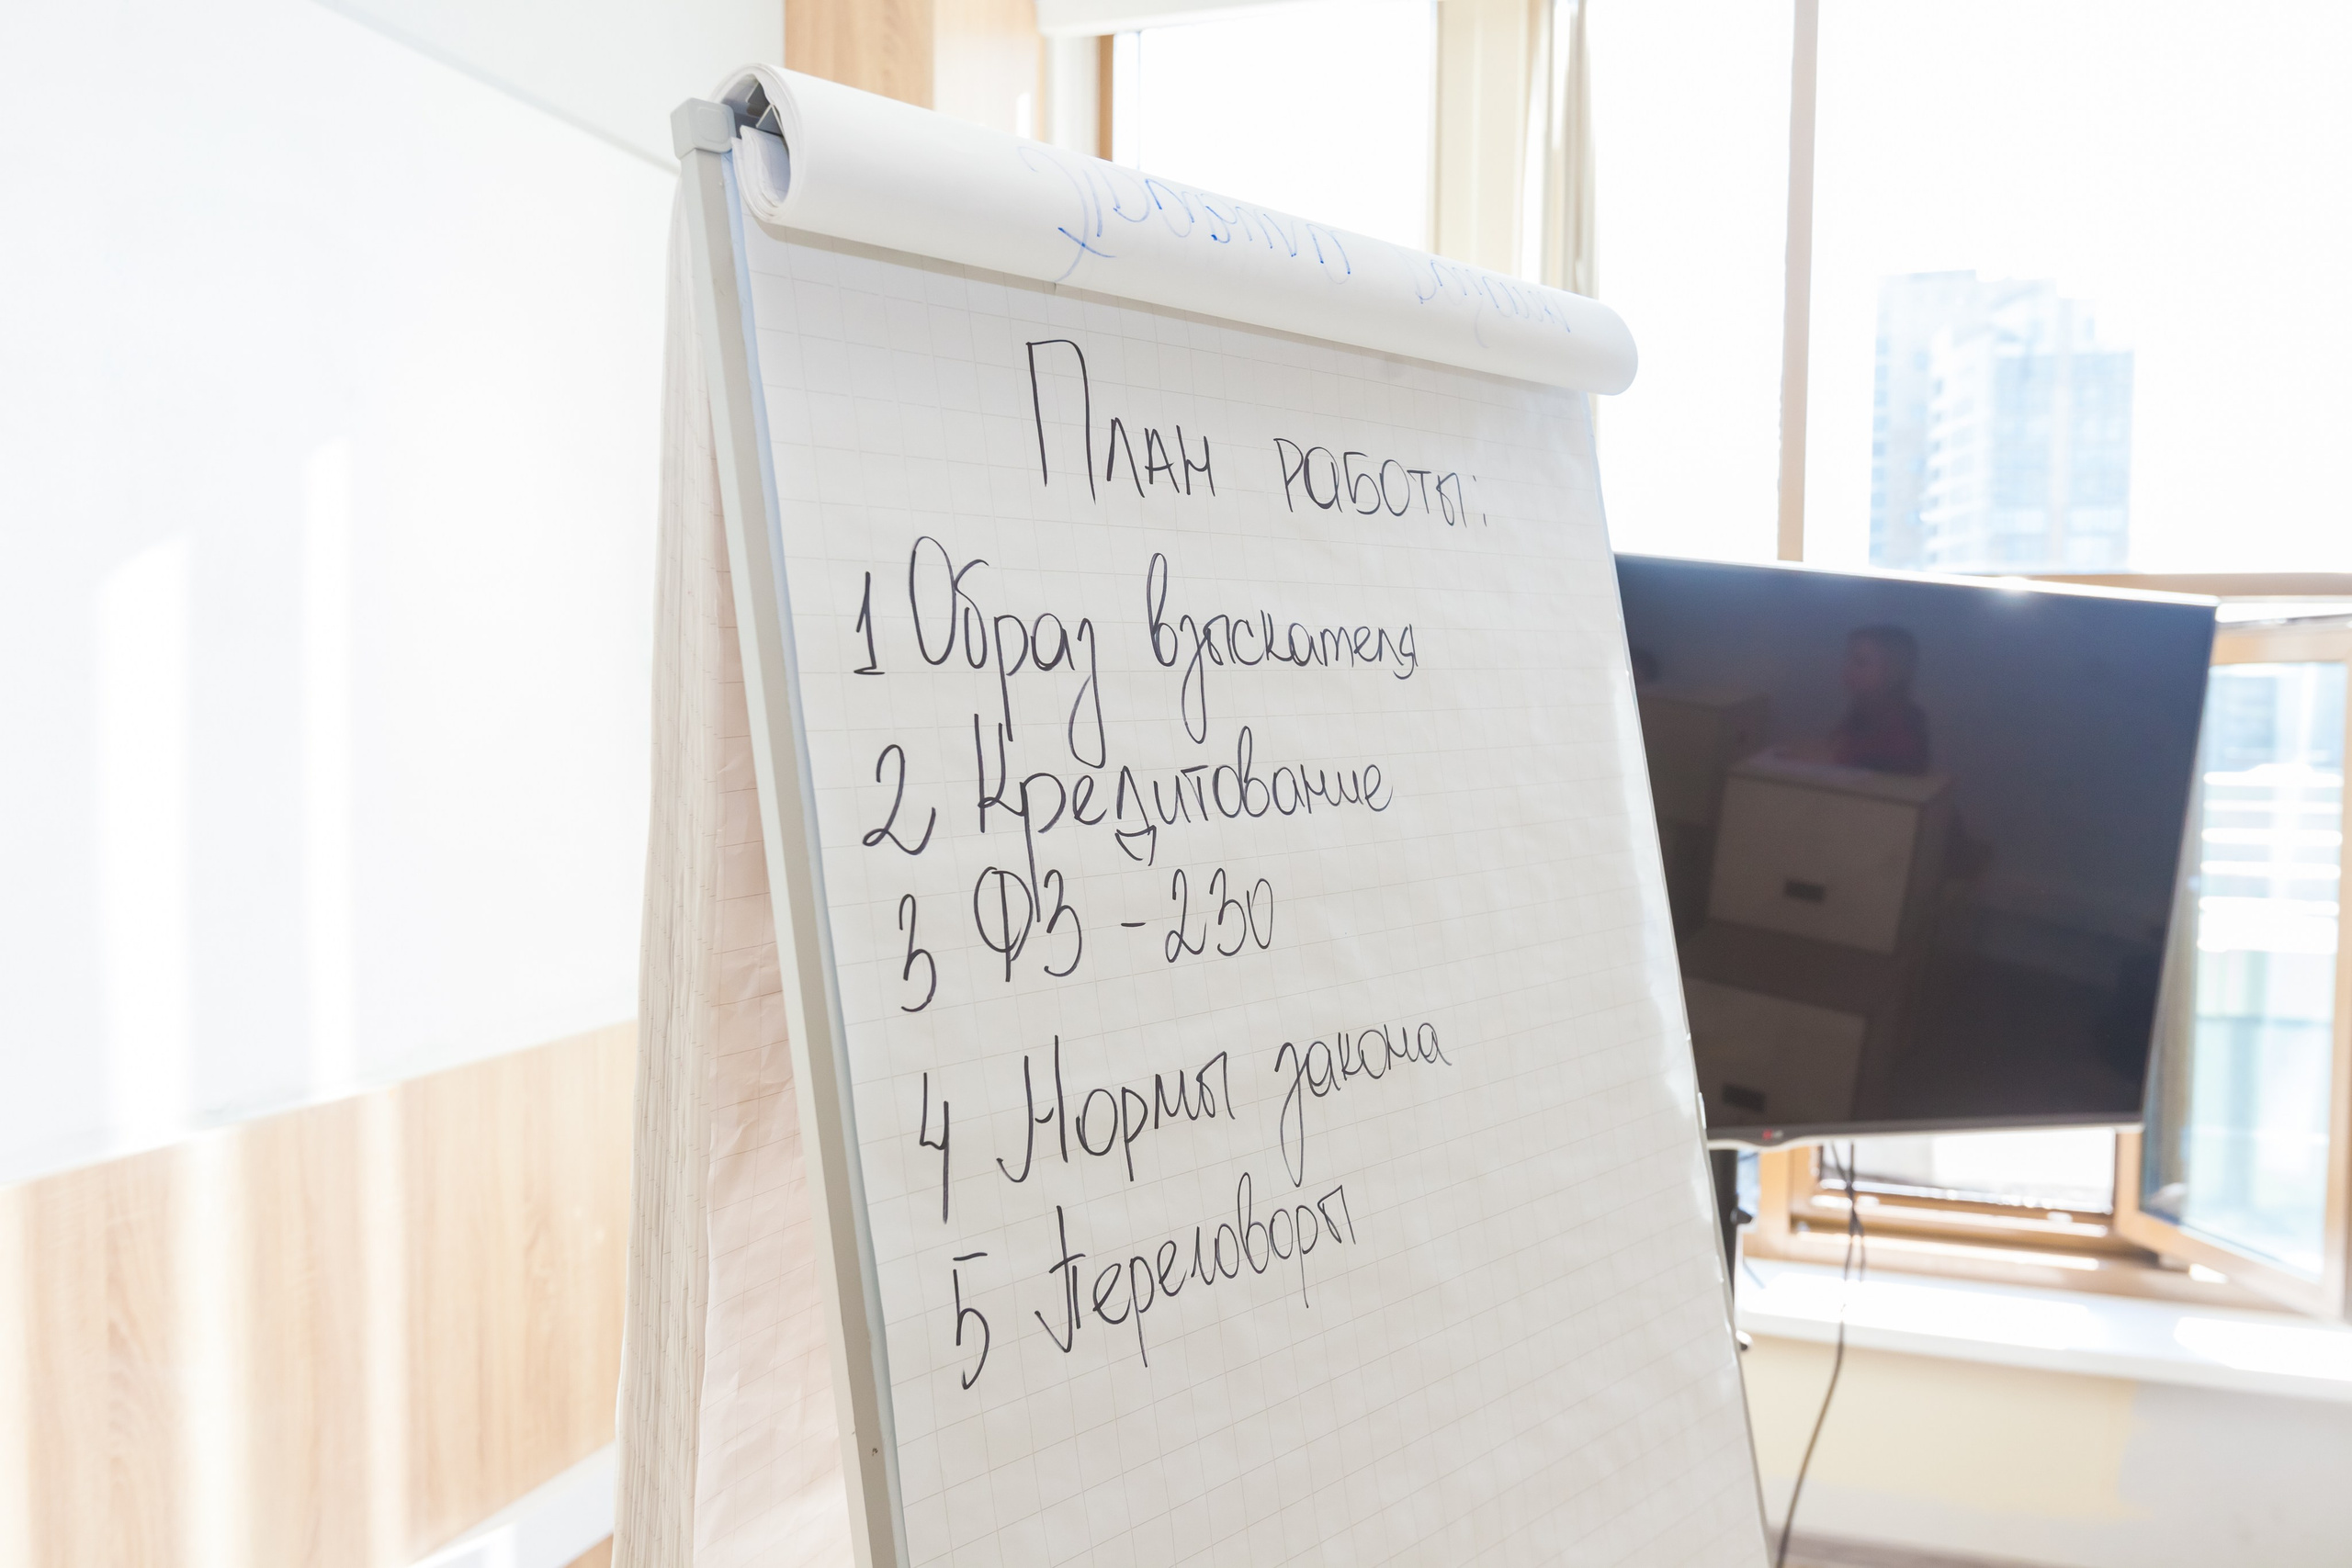 План работы:
1 Образ взыскателя
2 Кредитование
3 ФЗ - 230
4 Нормы закона
5 Переговоры